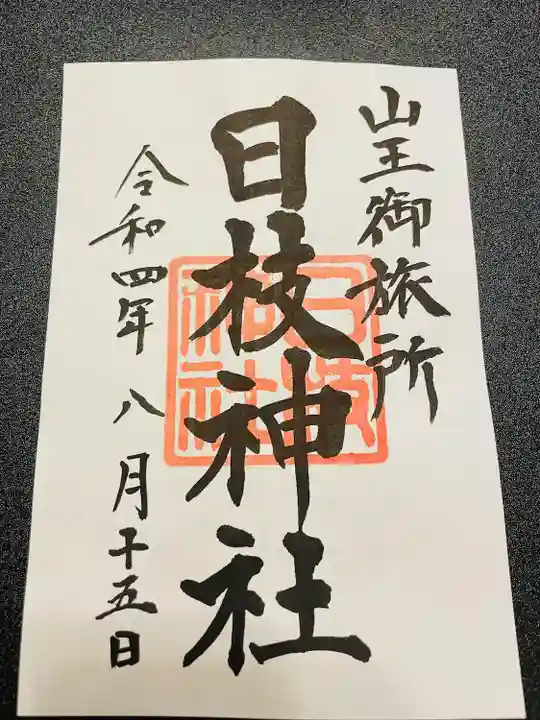 山王御旅所
日枝神社
令和四年 八月十五日
日枝神社